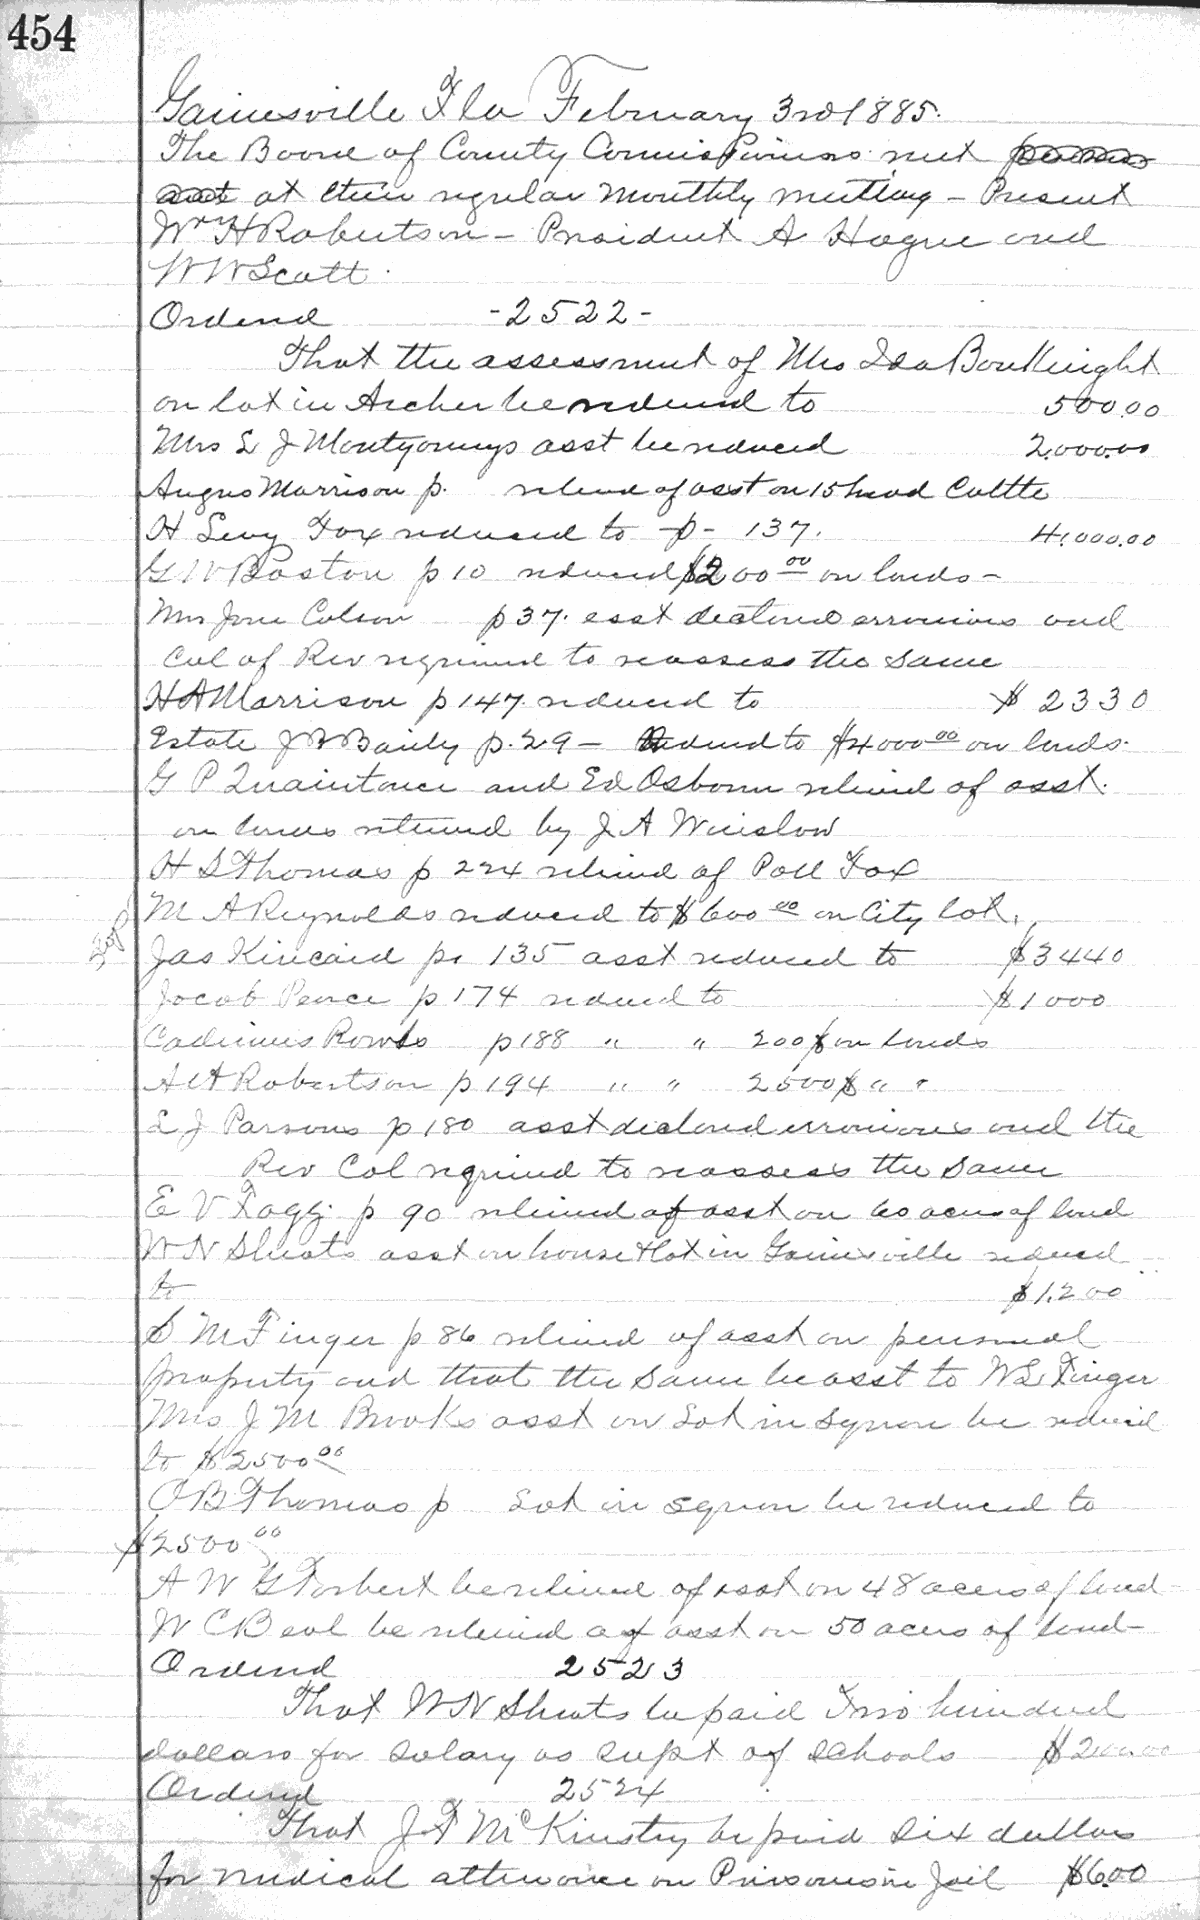 454
Gainesville Fla February 3rd 1885.
The Board of County Commissioners met
at their regular monthly meeting - Present
Wm H Robertson - President A Hague and
W W Scott.
Ordered -2522-
That the assessment of Mrs Ida Bouknight
on lot in Archer be reduced to 500.00
Mrs L J Montgomerys asst be reduced 2,000.00
Angus Morrison p. relievd of asst on 15 head Cattle
H Levy Tax reduced to -p- 137. 4,000.00
G W Boston p 10 reduced $200 00 on lands -
Mrs Jane Colson p 37. asst declared erronious and
Col of Rev required to reassess the same
H A Marrison p 147. reduced to $ 2330
Estate J Baily p. 29 - Reduced to $4000 00 on lands.
G P Quaintance and Ed Osborn relieved of asst.
on lands returned by J A Winslow
H S Thomas p 224 relieved of Poll Tax
M A Reynolds reduced to $600 00 on City lot.
Jas Kincaid p. 135 asst reduced to $3440
Jacob Pence p 174 reduced to $1000
Rowls p 188 " " 200$ on lands
Robertson p 194 " " 2500$ " "
L J Parsons p 180 asst declared erronious and the
Rev Col required to reassess the same
E V Fogg. p 90 relieved of asst on 60 acres of land
W N Sheats asst on house & lot in Gainesville reduced
to $1,200
S M Finger p 86 relieved of asst on personal
property and that the same be asst to W L Finger
Mrs J M Brooks asst on Lot in Square be reduced
to $2500 00
O B Thomas p Lot in square be reduced to
$2500 00
A W G Torbert be relieved of asst on 48 acres of land
W C Beal be relieved of asst on 50 acres of land -
Ordered 2523
That W N Sheats be paid Two hundred
dollars for Salary as Supt of Schools $200.00
Ordered 2524
That J F McKinstry be paid Six dollars
for medical attendance on Prisoners in Jail $6.00